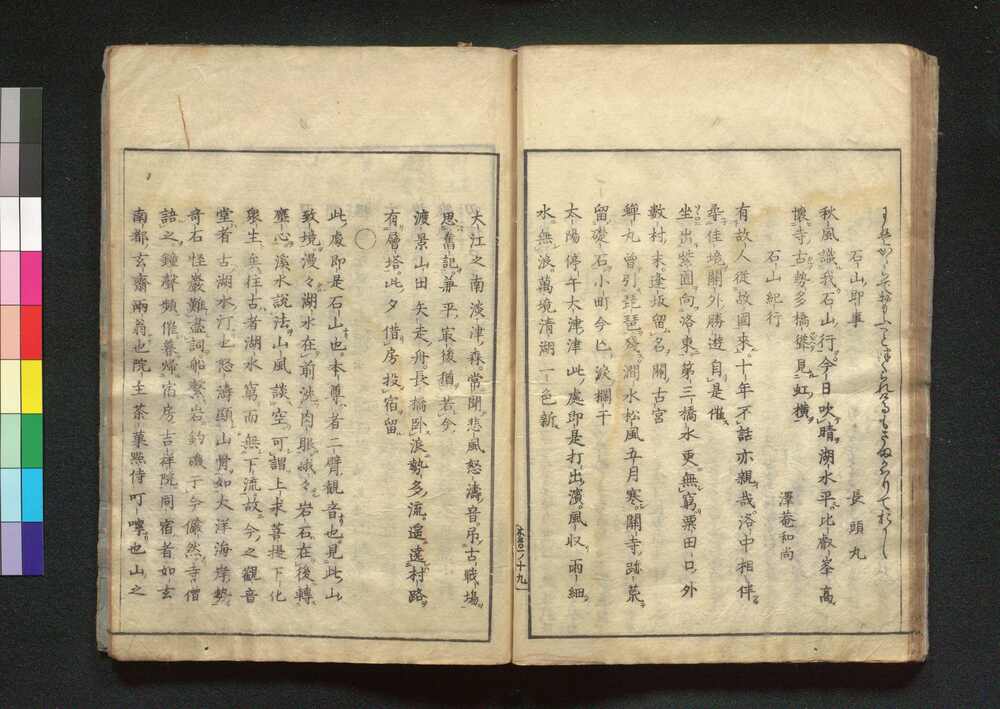 石山即事 長頭丸
秋風識我石山行今日吹晴湖水平比叡峯高
懐寺古勢多橋儼見虹横
石山紀行 澤菴和尚
有故人從故國來十年不話亦親哉洛中相伴
尋佳境關外勝遊自是催
坐出紫園向洛東第三橋水更無窮粟田口外
數村未逢坂留名關古宮
蝉丸曽引琵琶澗水松風五月寒關寺跡荒
留礎石小町今亡涙欄干
太陽停午大津津此處即是打出濱風収雨細
水無浪萬境清湖一色新
大江之南淡津森常聞悲風怒濤音吊古戰塲
思舊記兼平最後猶若今
渡景山田矢走舟長橋卧浪勢多流遥遠村路
有層塔此夕借房投宿留
〇
此處即是石山也本尊者二臂觀音也見此山
致境漫々湖水在前洗肉眼峨々岩石在後轉
塵心溪水説法山風談空可謂上求菩提下化
衆生矣徃古者湖水窮而無下流故今之觀音
堂者古湖水汀也怒濤顯山骨如大洋海岸勢
奇石怪巖難盡詞船繋岩釣磯于今儼然寺僧
語之鐘聲頻催暮帰宿房吉祥院同宿者如玄
南都玄齋兩翁也院主茶菓點侍叮嚀也山之
本呂一ノ十九